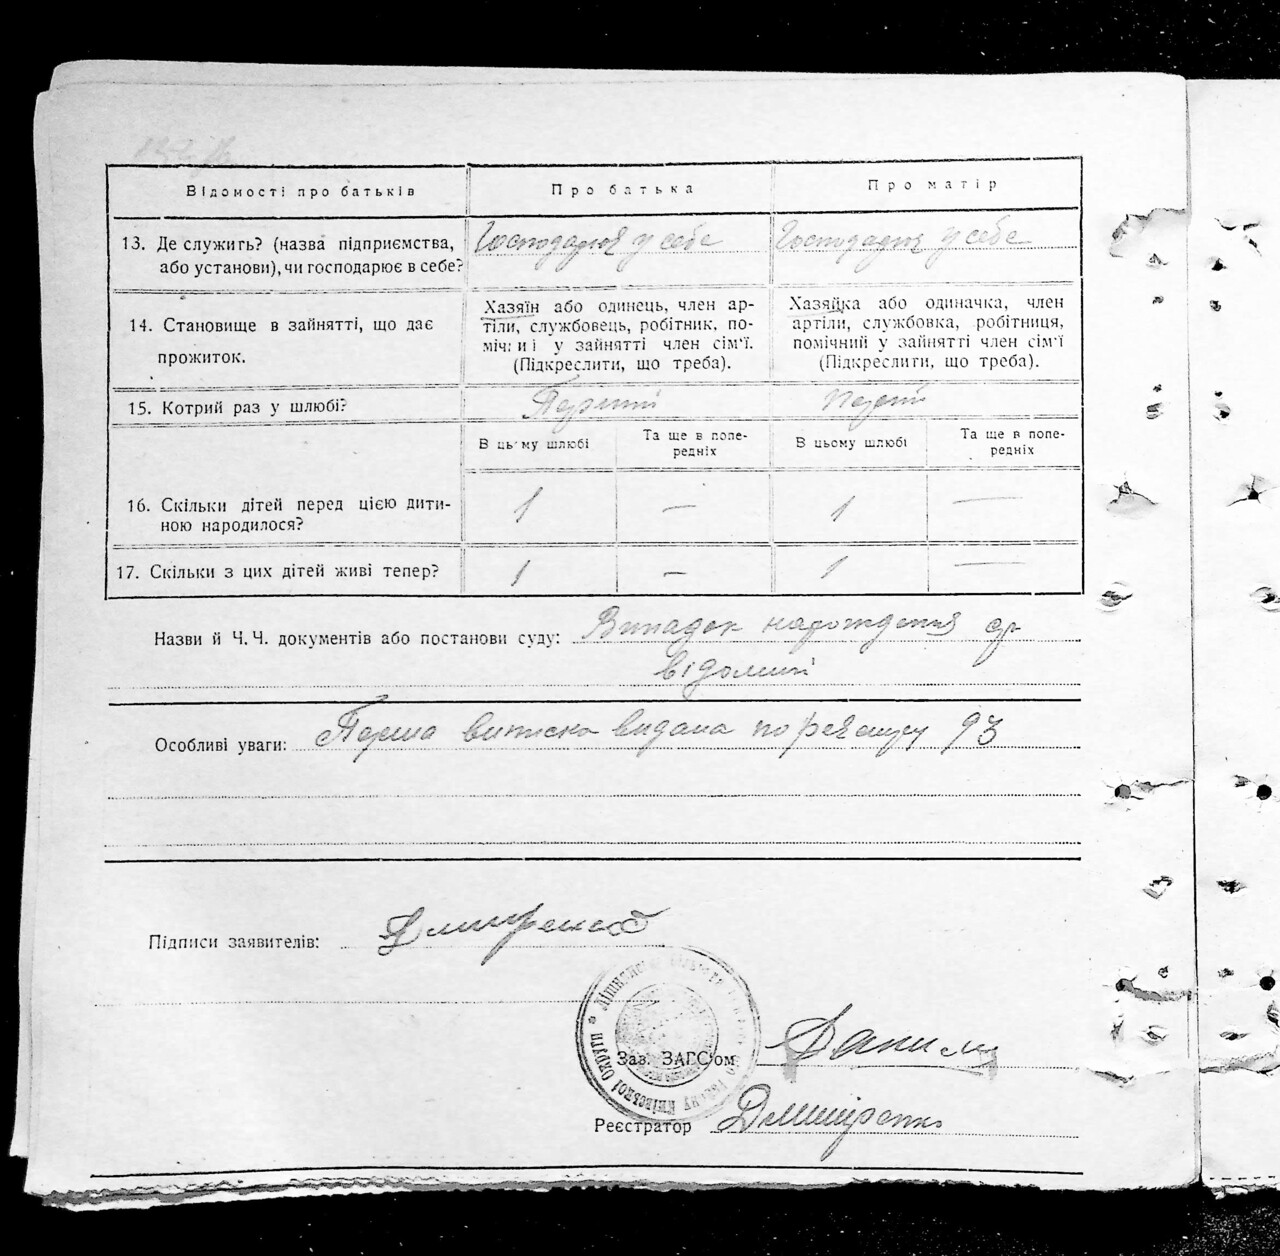 Відомості про батьків
Про батька
Про матір
13. Де служить? (назва підприємства, або установи), чи господарює в себе?
Господарює у себе
Господарює у себе
14. Становище в зайнятті, що дає прожиток.
Хазяїн або одинець, член ар-
тілі, службовець, робітник, по-
мічниі у зайнятті член сім'ї.
(Підкреслити, що треба).
Хазяйка або одиначка, член
артілі, службовка, робітниця,
помічний у зайнятті член сім'ї
(Підкреслити, що треба).
15. Котрий раз у шлюбі?
Перший
Перший
В цьому шлюбі
Та ще в попе-
редніх
В цьому шлюбі
Та ще в попе-
редніх
16. Скільки дітей перед цією дити-
ною народилося?
1
—
1
—
17. Скільки з цих дітей живі тепер?
1
—
1
—
Назви й Ч.Ч. документів або постанови суду: Випадок народження
відомий
Особливі уваги: Перша виписка видана по реєстру 93
Підписи заявителів:
Київської округи
Зав. ЗАГС'ом
Реєстратор Дмитренко